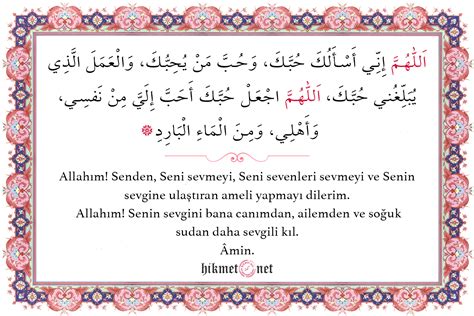 اَللّٰهُمَّ إِنِّي أَسْأَلُكَ حُبَّكَ، وَحُبَّ مَنْ يُحِبُّكَ، وَالْعَمَلَ الَّذِي
يُبَلِّغُنِي حُبَّكَ، اَللّٰهُمَّ اجْعَلْ حُبَّكَ أَحَبَّ إِلَيَّ مِنْ نَفْسِي،
وَأَهْلِي، وَمِنَ الْمَاءِ الْبَارِدِ
Allahım! Senden, Seni sevmeyi, Seni sevenleri sevmeyi ve Senin
sevgine ulaştıran ameli yapmayı dilerim.
Allahım! Senin sevgini bana canımdan, ailemden ve soğuk
sudan daha sevgili kıl.
Âmin.
hikmet.net